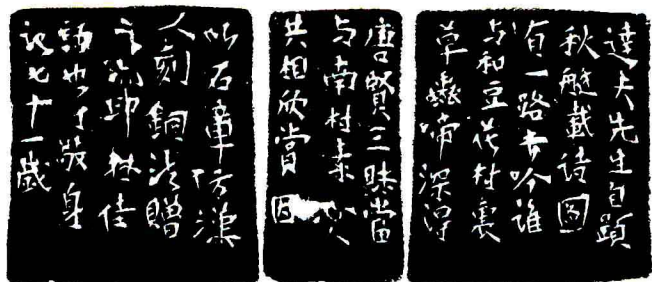 達夫先生自題
秋艇載詩圖
有一路長吟誰
与和豆花村裏
草蟲啼深得
唐賢三昧當
与南村素心
共相欣賞因
以石章仿漢
人刻銅法贈
之爲印林佳
話也丁敬身
記七十一歲